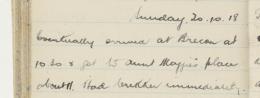 Sunday. 20.10.18
Eventually arrived at Brecon at
10.30 & got to Aunt Maggie's place
about 11. Had breakker immediately.